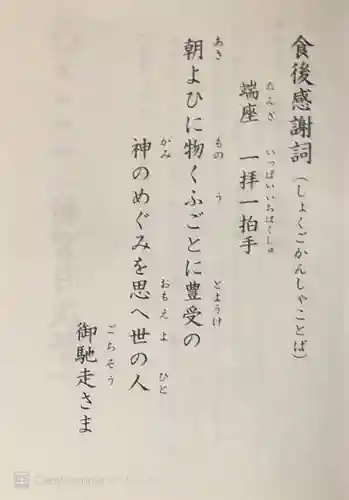 食後感謝詞(しょくごかんしゃことば)
端座 一拝一拍手
たんざ いっぱいいちはくしゅ
朝よひに物くふごとに豊受の
あさ もの う とようけ
神のめぐみを思へ世の人
かみ おもえ よ ひと
御馳走さま
ごちそう
CamScanner